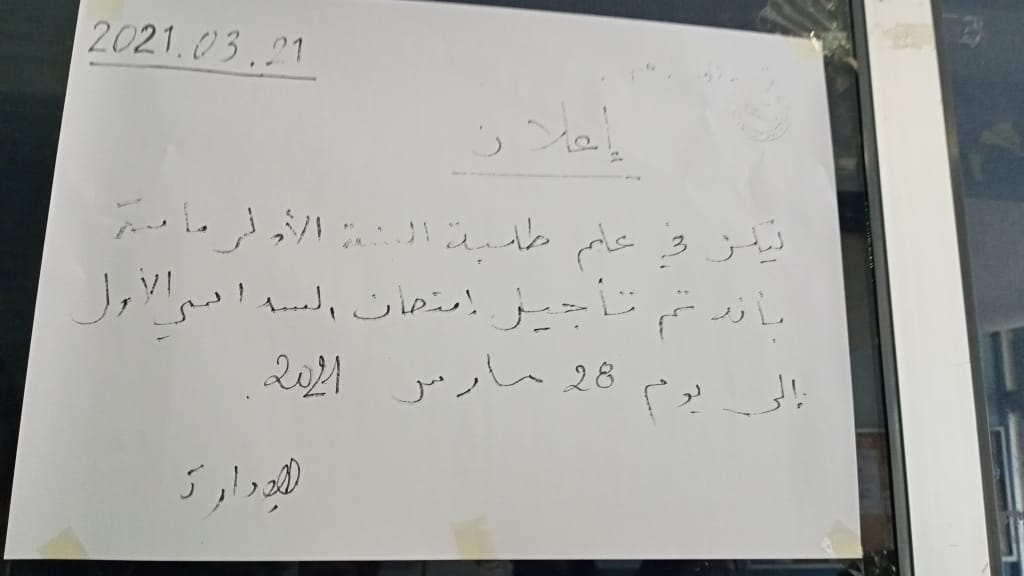 2021.03.21
إعلان
ليكن في علم طلبة السنة الأولى ماستر
بأنه تم تأجيل إمتحان السداسي الأول
إلى يوم 28 مارس 2021.
الإدارة